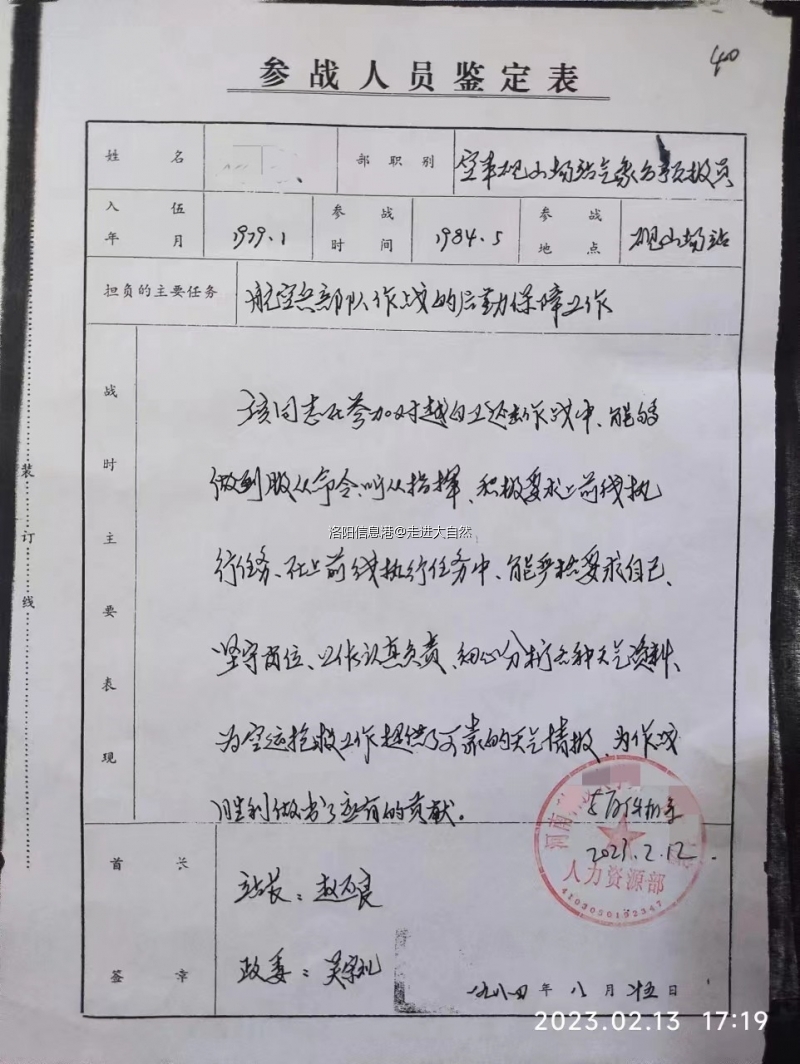 40
参战人员鉴定表
姓名
部职别
空军砚山场站气象台预报员
入伍年月
1979.1
参战时间
1984.5
参战地点
砚山场站
担负的主要任务
航空兵部队作战的后勤保障工作
战时主要表现
该同志在参加对越自卫还击作战中、能够
做到服从命令、听从指挥、积极要求上前线执
行任务、在上前线执行任务中、能严格要求自己、
坚守岗位、工作认真负责、细心分析各种天气资料、
为空运抢救工作提供了可靠的天气情报、为作战
胜利做出了应有的贡献。
洛阳信息港@走进大自然
装订线
与原件相符
2023.2.12.
河南
人力资源部
4103050192347
首长签章
站长：赵
政委：吴
一九八四年八月廿五日
2023.02.13 17:19